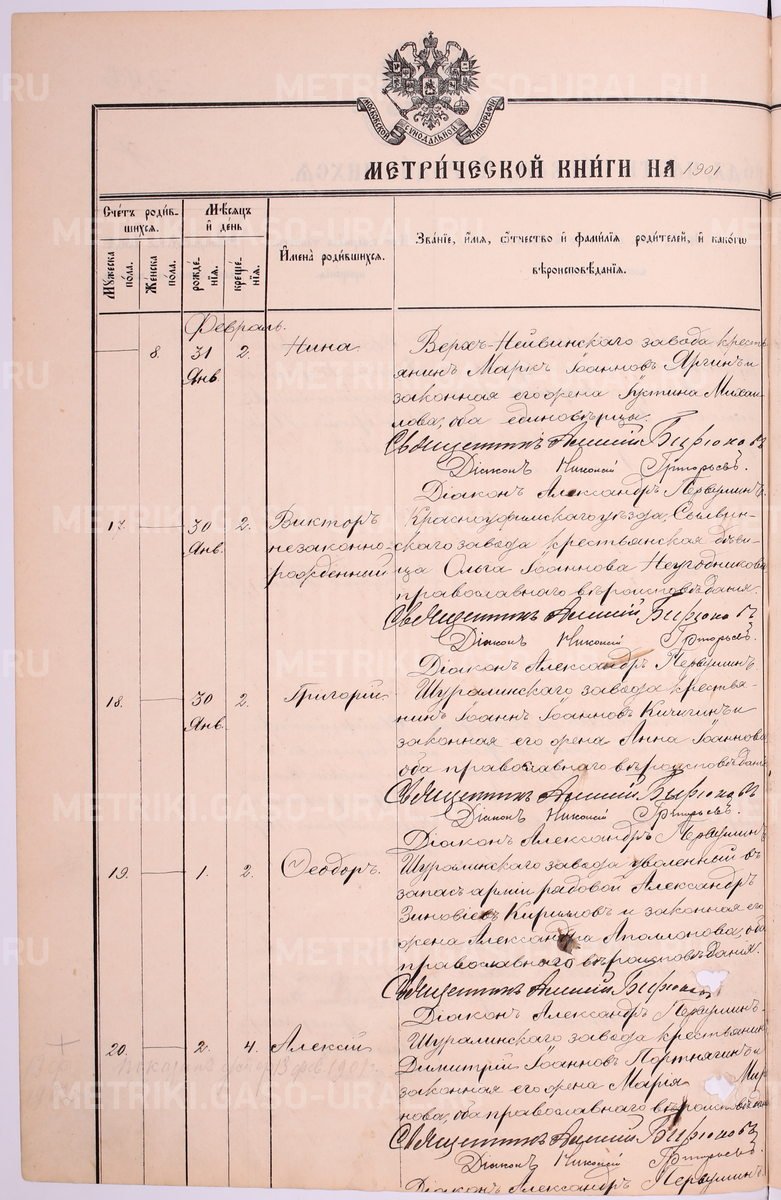 МОСКОВСКОЙ СѴНОДАЛЬНОЙ ТИПОГРАФІИ
МЕТРИ́ЧЕСКОЙ КНИ́ГИ НА 1901
Сче́тъ роди́в-
шихся.
Мѣ́сяцъ
и҆ де́нь
И҆мена̀ роди́вшихся.
Зва́нїе, и҆́мѧ, ѻ҆́тчество и҆ фами́лїѧ роди́телей, и҆ какогѡ
вѣроисповѣ́данїѧ.
Му́жеска
по́ла.
Же́нска
по́ла.
рожде́-
нїѧ.
креще́-
нїѧ.
Февраль.
8. 31 2. Нина
Янв.
Верхъ-Нейвинскаго завода кресть
янинъ Маркъ Іоанновъ Ярчинъ и
законная его жена Іустина Михаи
лова, оба единовѣрцы.
Священникъ Алексій Бирюковъ
Діаконъ Никоній Григорьевъ.
Діаконъ Александръ Первушинъ.
17. 30 2. Викторъ
Янв. незаконно-
рожденный
Красноуфимскаго уѣзда, Сылвин-
скаго завода крестьянская дѣви-
ца Ольга Іоаннова Неугодникова
православнаго вѣроисповѣданія.
Священникъ Алексій Бирюковъ
Діаконъ Никоній Григорьевъ.
Діаконъ Александръ Первушинъ
18. 30 2. Григорій
Янв.
Шуралинскаго завода крестья-
нинъ Іоаннъ Іоанновъ Кичигинъ и
законная его жена Анна Іоаннова
оба православнаго вѣроисповѣдані
Священникъ Алексій Бирюковъ
Діаконъ Никоній Григорьевъ.
Діаконъ Александръ Первушинъ
19. 1. 2. Ѳеодоръ.
Шуралинскаго завода уволенный въ
запасъ арміи рядовой Александръ
Зиновіевъ Кирилловъ и законная его
жена Александра Аполлонова, оба
православнаго вѣроисповѣданія.
Священникъ Алексій Бирюковъ
Діаконъ Александръ Первушинъ
20. 2. 4. Алексій
Шуралинскаго завода крестьянинъ
Димитрій Іоанновъ Портнягинъ и
законная его жена Марія Миро
нова, оба православнаго вѣроисповѣдані
Священникъ Алексій Бирюковъ
Діаконъ Никоній Григорьевъ.
Діаконъ Александръ Первушинъ.
METRIKI.GASO-URAL.RU